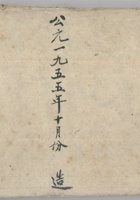 公元一九五五年十月份 造